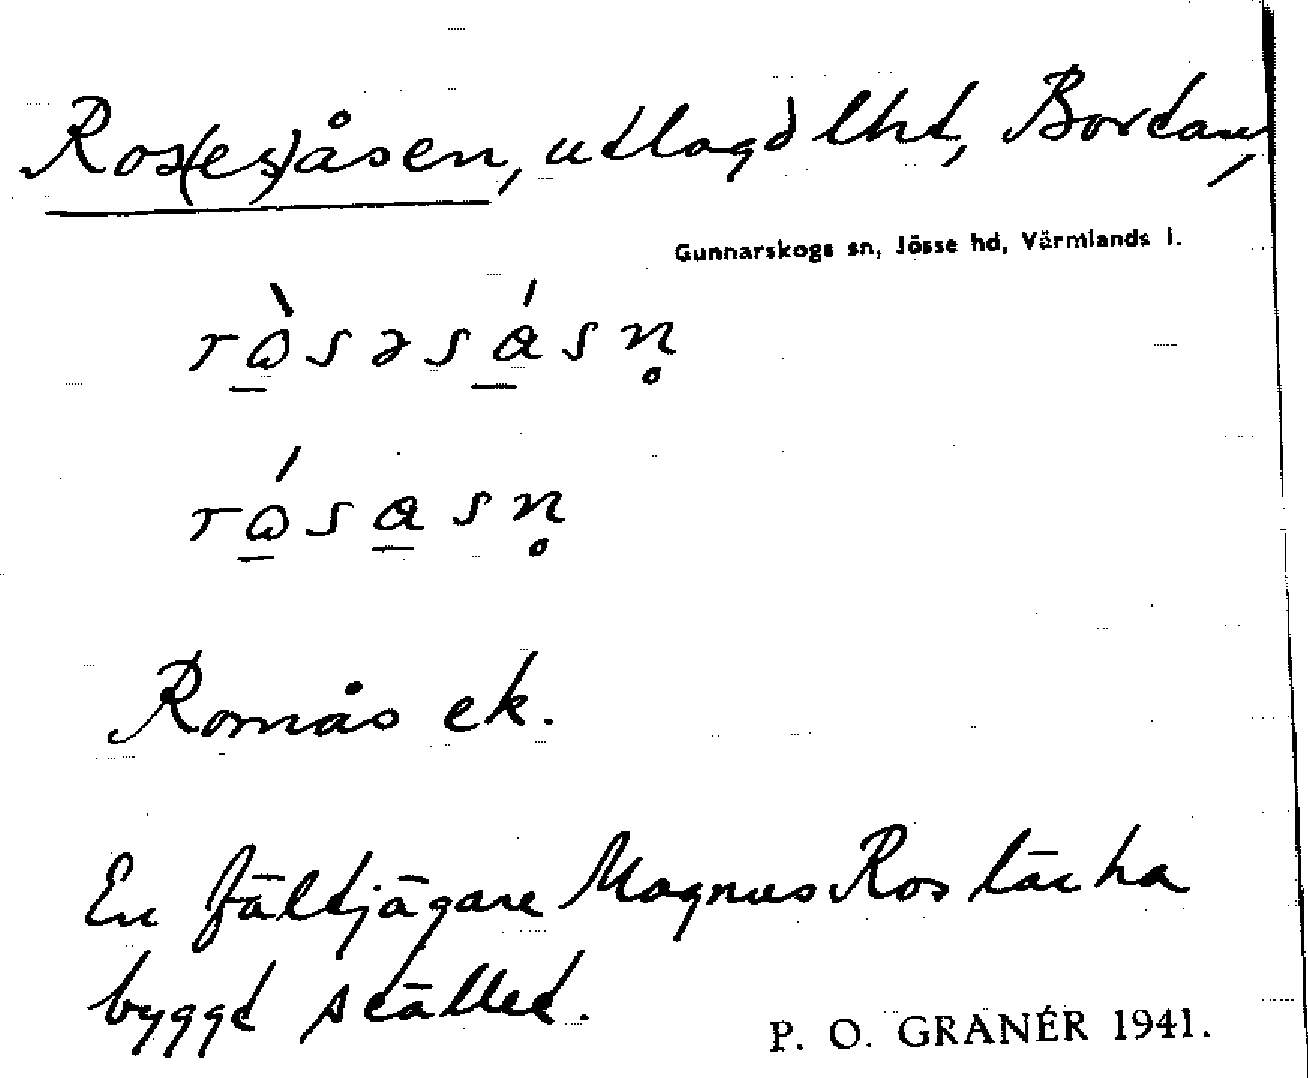 Ros(es)åsen, utlagd lht, Bortan,
Gunnarskogs sn, Jösse hd, Värmlands l.
rɷ̀səsásn̥
rɷ́sasn̥
Romås ek.
En fältjägare Magnus Ros lär ha
byggt stället.
P. O. GRANÉR 1941.